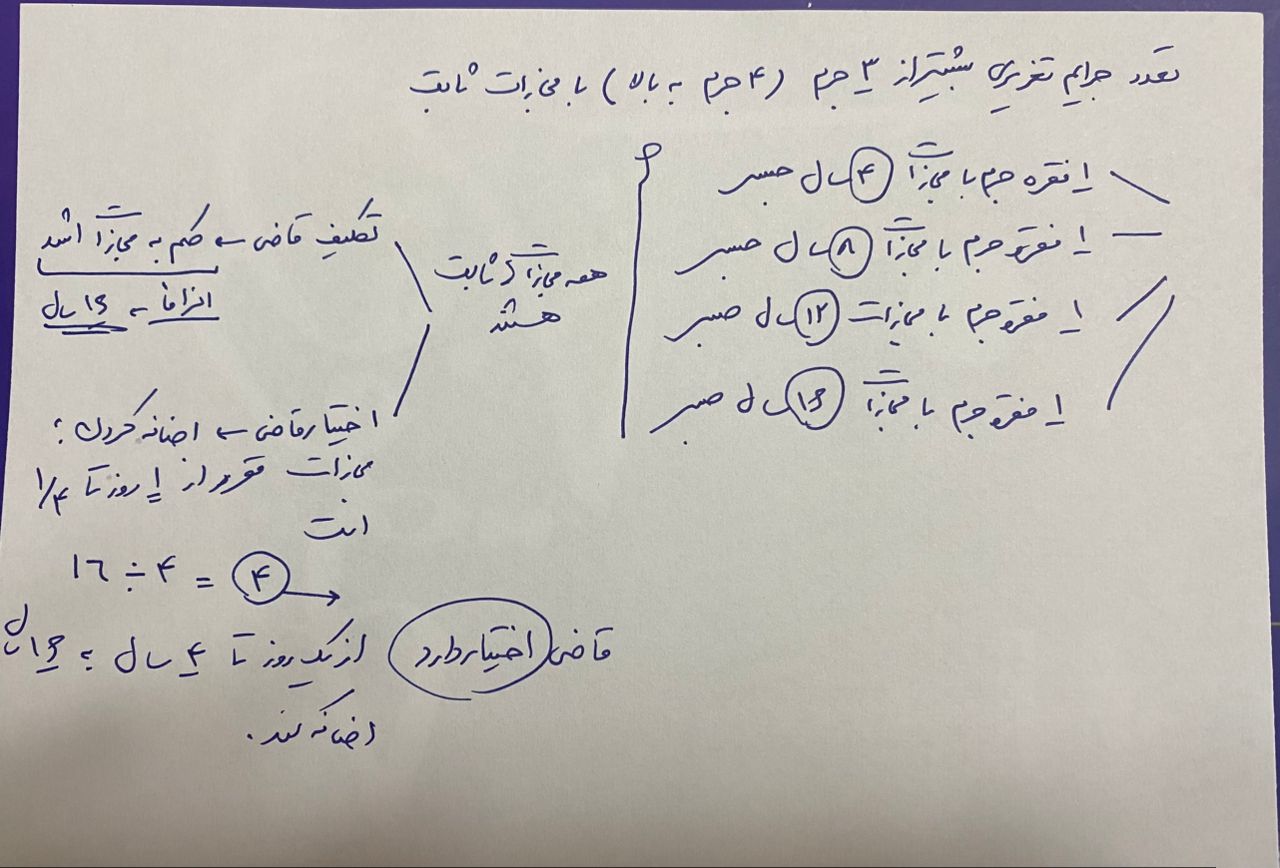 تعدد جرایم تعزیری بیشتر از ۳ جرم (۴ جرم به بالا) با مجازات ثابت
۱ فقره جرم با مجازات ۴ سال حبس
۱ فقره جرم با مجازات ۸ سال حبس
۱ فقره جرم با مجازات ۱۲ سال حبس
۱ فقره جرم با مجازات ۱۶ سال حبس
همه مجازات ثابت
هستند
تکلیف قاضی ← حکم به مجازات اشد
الزاماً ← ۱۶ سال
اختیار قاضی ← اضافه کردن؛
مجازات مقرر از ۱ روز تا ۱/۴
است
۱۶ ÷ ۴ = ۴
قاضی اختیار دارد از یک روز تا ۴ سال به ۱۶ سال
اضافه کند.